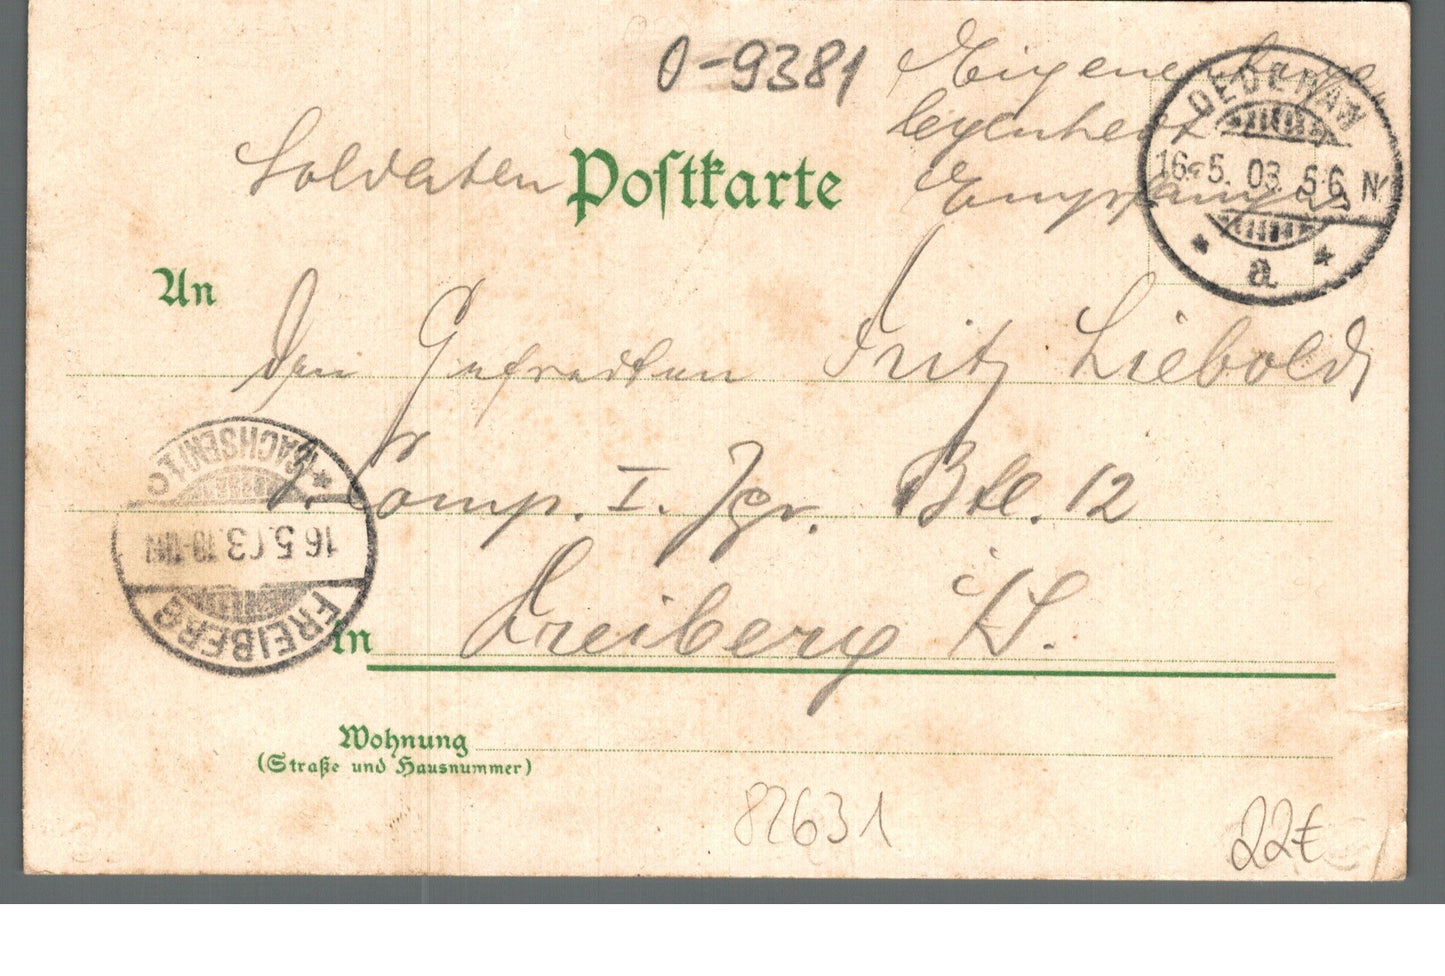 0-9381
Eigene Ange
legenheit
Empfängers
Soldaten Postkarte
OEDERAN
16. 5. 03. 5-6 N.
a
An
Den Gefreiten Fritz Liebold
Comp. I. Jgr. Btl. 12
SACHSEN
16.5.03
FREIBERG
in Freiberg i/S.
Wohnung
(Straße und Hausnummer)
82631
22€